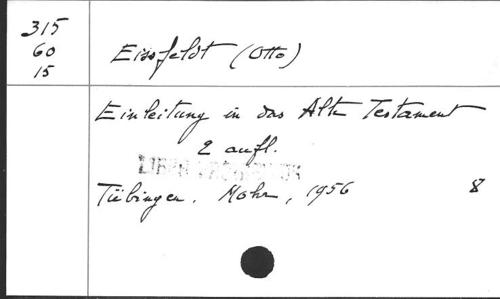 315
60
15
Eissfeldt (Otto)
Einleitung in das Alte Testament
2 aufl.
Tübingen. Mohr, 1956 8